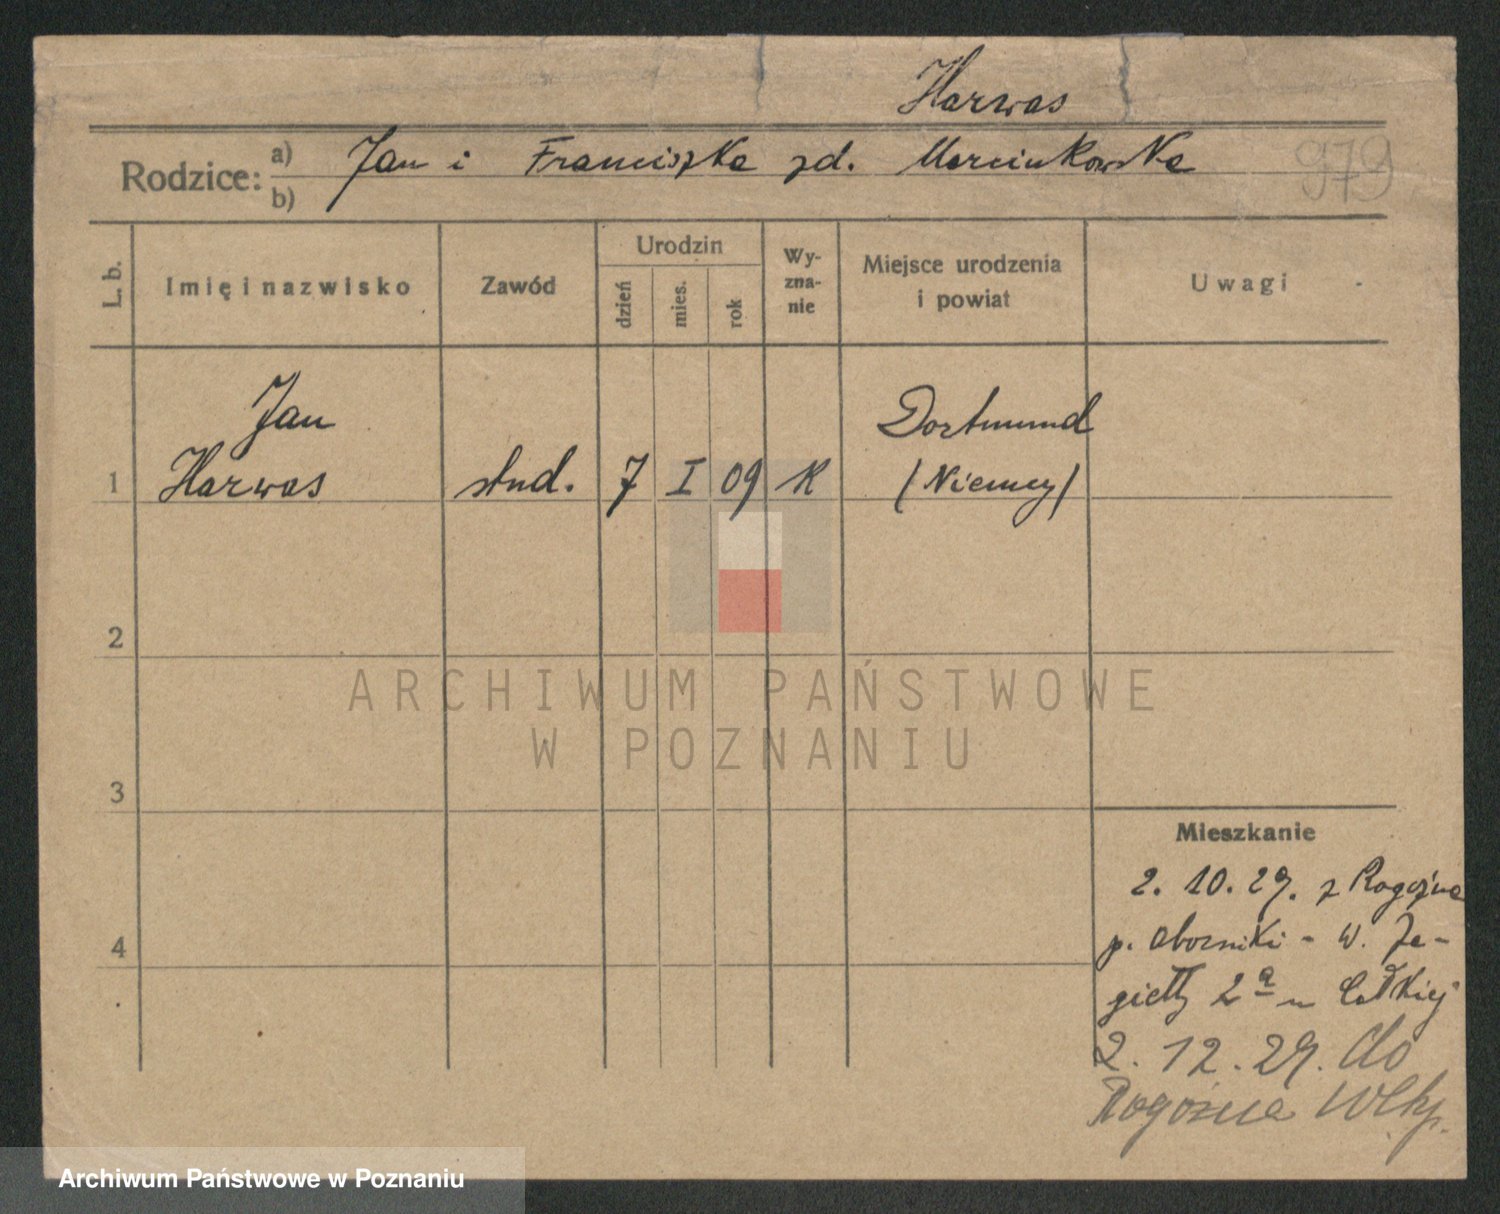 Harwas
Rodzice: a) Jan i Franciszka zd. Marcinkowska
b)
979
L. b. Imię i nazwisko Zawód Urodzin dzień mies. rok Wyznanie Miejsce urodzenia i powiat Uwagi
1 Jan Harwas stud. 7 I 09 K Dortmund (Niemcy)
2
3
4
Mieszkanie
2. 10. 29. z Rogoźna
p. Oborniki - W. Ja-
giełły 2a u
2. 12. 29. do
Rogoźna Wlkp.
ARCHIWUM PAŃSTWOWE
W POZNANIU
Archiwum Państwowe w Poznaniu